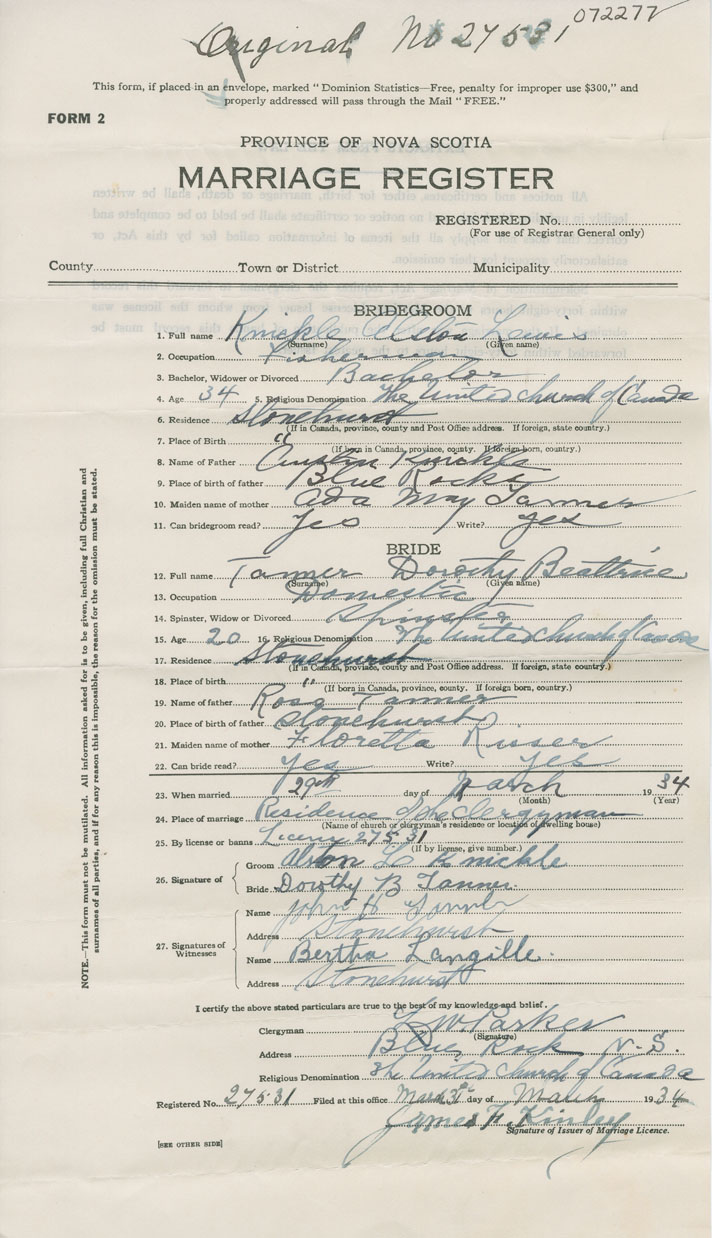 Original No 27531 072277
This form, if placed in an envelope, marked "Dominion Statistics—Free, penalty for improper use $300," and
properly addressed will pass through the Mail "FREE."
FORM 2
PROVINCE OF NOVA SCOTIA
MARRIAGE REGISTER
REGISTERED No.
(For use of Registrar General only)
County Town or District Municipality
BRIDEGROOM
1. Full name Knickle Elston Lewis
(Surname) (Given name)
2. Occupation Fisherman
3. Bachelor, Widower or Divorced Bachelor
4. Age 34 5. Religious Denomination The United church of Canada
6. Residence Stonehurst
(If in Canada, province, county and Post Office address. If foreign, state country.)
7. Place of Birth "
(If born in Canada, province, county. If foreign born, country.)
8. Name of Father Knickle
9. Place of birth of father Blue Rocks
10. Maiden name of mother Ada May Tanner
11. Can bridegroom read? Yes Write? yes
BRIDE
12. Full name Tanner Dorothy Beattrice
(Surname) (Given name)
13. Occupation Domestic
14. Spinster, Widow or Divorced Spinster
15. Age 20 16. Religious Denomination The United church of Canada
17. Residence Stonehurst
(If in Canada, province, county and Post Office address. If foreign, state country.)
18. Place of birth "
(If born in Canada, province, county. If foreign born, country.)
19. Name of father Ross Tanner
20. Place of birth of father Stonehurst
21. Maiden name of mother Floretta
22. Can bride read? Yes Write? Yes
23. When married 29th day of March 1934
(Month) (Year)
24. Place of marriage Residence of the Clergyman
(Name of church or clergyman's residence or location of dwelling house)
25. By license or banns 27531
(If by license, give number.)
26. Signature of
Groom L Knickle
Bride Dorothy B Tanner.
27. Signatures of Witnesses
Name John H
Address Stonehurst
Name Bertha Langille.
Address Stonehurst
I certify the above stated particulars are true to the best of my knowledge and belief.
Clergyman W. Parker
(Signature)
Address Blue Rock N.S.
Religious Denomination The United church of Canada
Registered No. 27531 Filed at this office March 31st day of March 1934
James F. Kinley
Signature of Issuer of Marriage Licence.
[SEE OTHER SIDE]
NOTE.—This form must not be mutilated. All information asked for is to be given, including full Christian and
surnames of all parties, and if for any reason this is impossible, the reason for the omission must be stated.